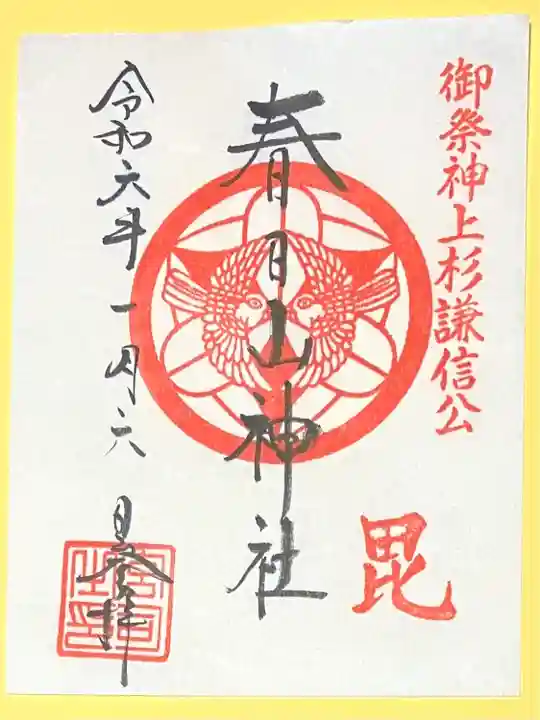 御祭神上杉謙信公
毘
春日山神社
令和六年一月六日登拝